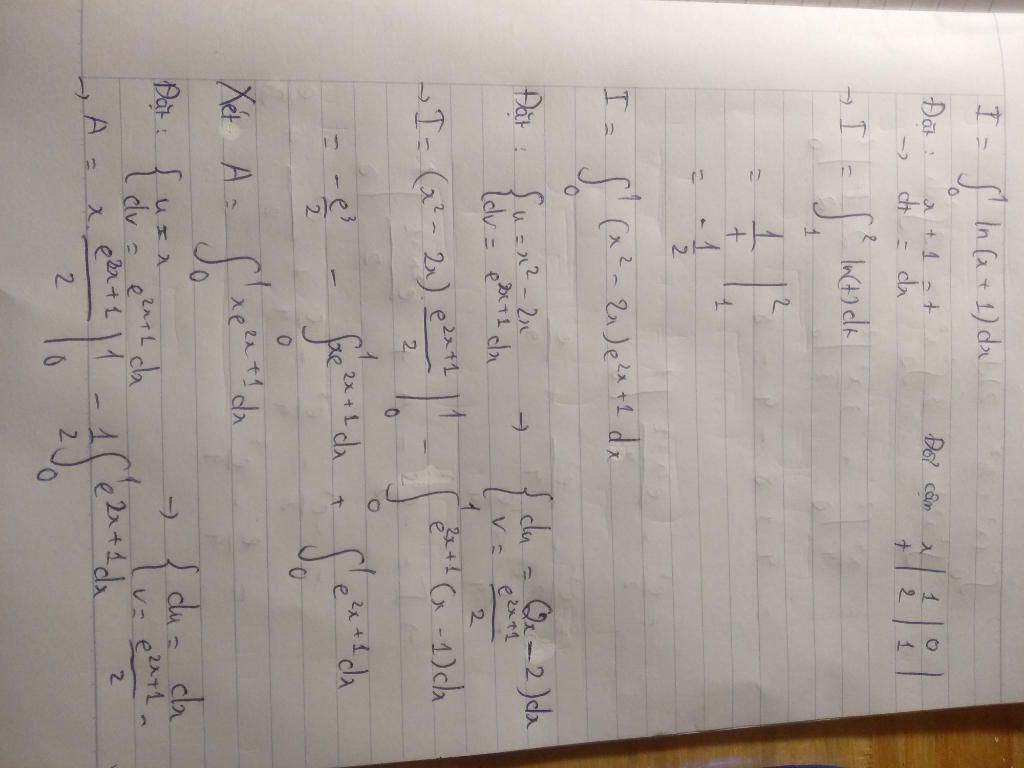 I = ∫₀¹ ln(x+1)dx
Đặt : x + 1 = t Đổi cận x | 1 | 0 |
→ dt = dx t | 2 | 1 |
→ I = ∫₁² ln(t)dt
= 1/t |₁²
= -1/2
I = ∫₀¹ (x² - 2x)e^(2x+1) dx
Đặt : { u = x² - 2x → { du = (2x - 2)dx
{ dv = e^(2x+1) dx { v = e^(2x+1)/2
→ I = (x² - 2x) e^(2x+1)/2 |₀¹ - ∫₀¹ e^(2x+1) (x - 1)dx
= -e³/2 - ∫₀¹ xe^(2x+1) dx + ∫₀¹ e^(2x+1) dx
Xét A = ∫₀¹ xe^(2x+1) dx
Đặt : { u = x → { du = dx
{ dv = e^(2x+1) dx { v = e^(2x+1)/2
→ A = x e^(2x+1)/2 |₀¹ - 1/2 ∫₀¹ e^(2x+1) dx